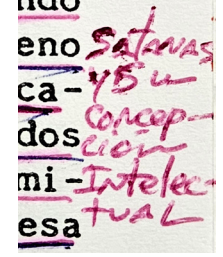 ndo
eno
ca-
dos
mi-
esa
SatanAs
y su
Concep-
ción
Intelec-
tuAL